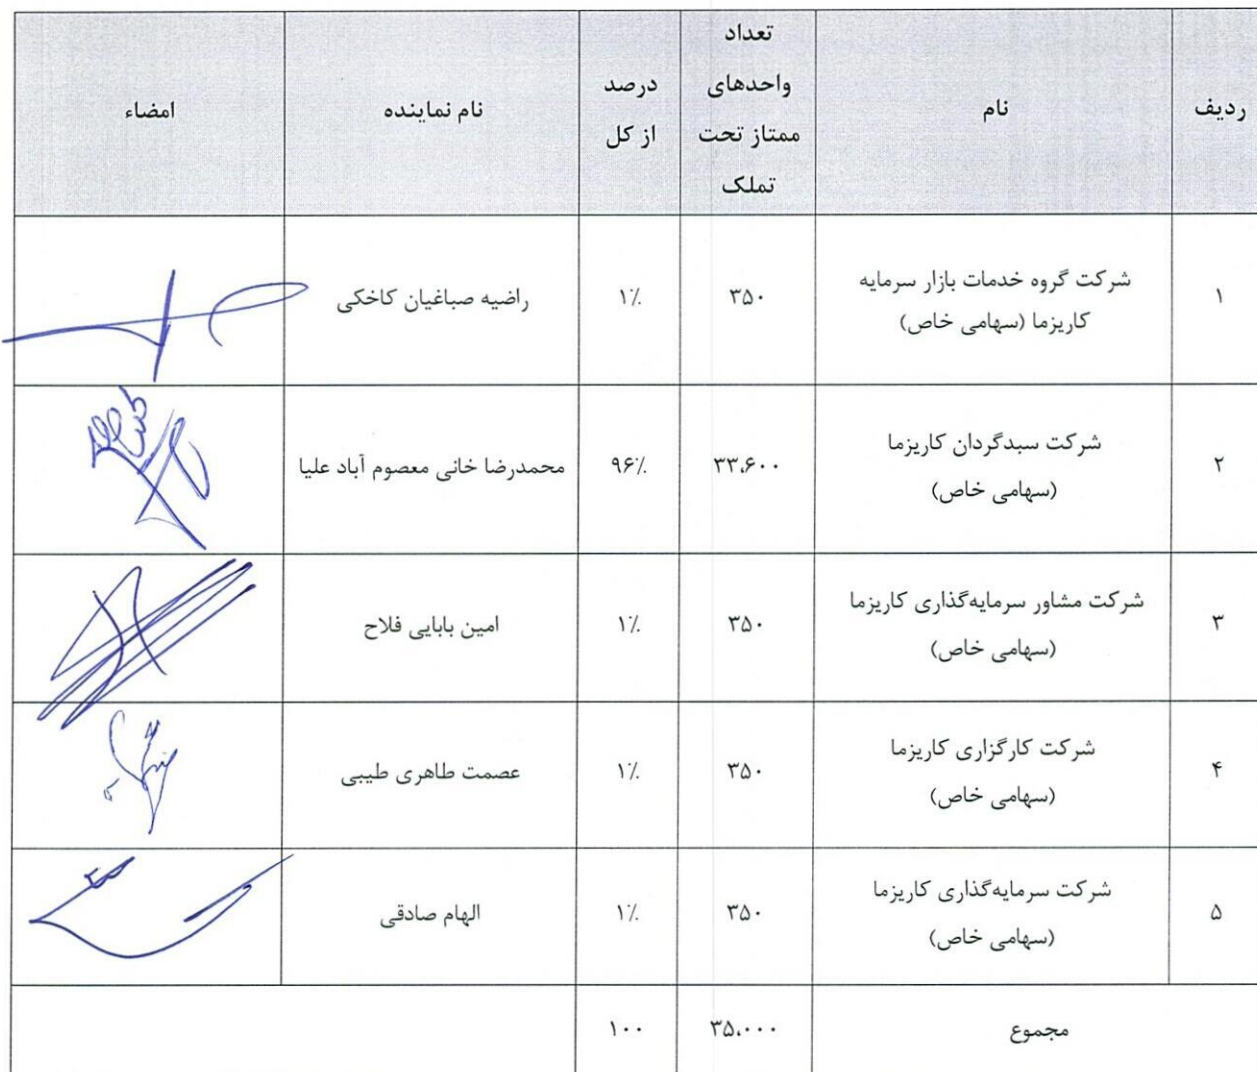 ردیف
نام
تعداد
واحدهای
ممتاز تحت
تملک
درصد
از کل
نام نماینده
امضاء
۱
شرکت گروه خدمات بازار سرمایه
کاریزما (سهامی خاص)
۳۵۰
۱٪
راضیه صباغیان کاخکی
۲
شرکت سبدگردان کاریزما
(سهامی خاص)
۳۳،۶۰۰
۹۶٪
محمدرضا خانی معصوم آباد علیا
۳
شرکت مشاور سرمایه‌گذاری کاریزما
(سهامی خاص)
۳۵۰
۱٪
امین بابایی فلاح
۴
شرکت کارگزاری کاریزما
(سهامی خاص)
۳۵۰
۱٪
عصمت طاهری طیبی
۵
شرکت سرمایه‌گذاری کاریزما
(سهامی خاص)
۳۵۰
۱٪
الهام صادقی
مجموع
۳۵،۰۰۰
۱۰۰